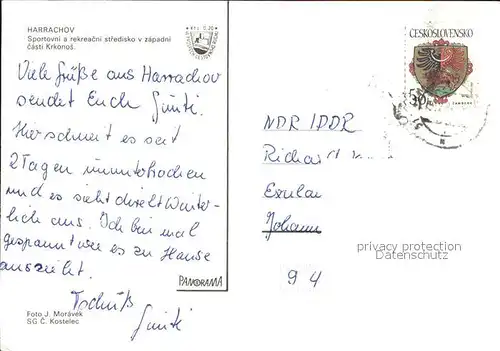 HARRACHOV
Sportovní a rekreační středisko v západní
části Krkonoš.
Viele Grüße aus Harrachov
sendet Euch
Hier schneit es seit
2 Tagen ununterbrochen
und es sieht direkt Winter-
lich aus. Ich bin mal
gespannt wie es zu Hause
aussieht.
Tschüß
PANORAMA
Foto J. Morávek
SG Č. Kostelec
ČESKOSLOVENSKO
50
NDR / DDR
Richard
Johann
94
privacy protection
Datenschutz